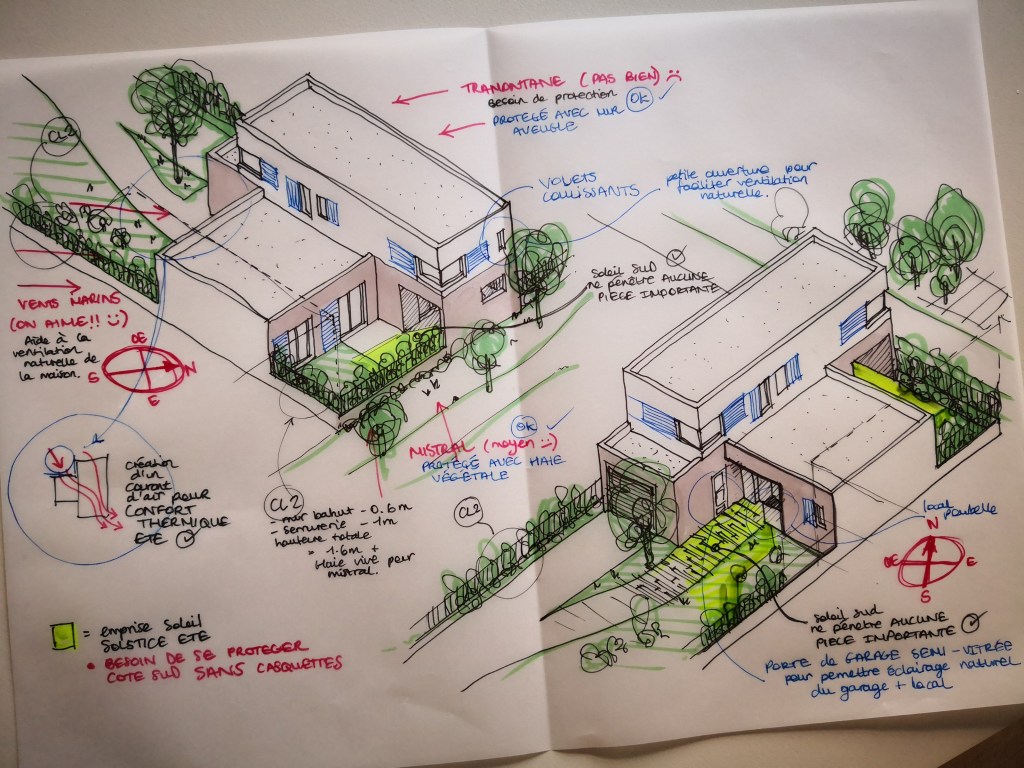 TRAMONTANE (PAS BIEN) :(
BESOIN de PROTECTION
PROTÉGÉ AVEC MUR OK ✓
AVEUGLE
CL2
VOLETS
COULISSANTS
petite ouverture pour
faciliter ventilation
naturelle.
SOLEIL SUD
ne pénètre AUCUNE
PIECE IMPORTANTE
VENTS MARINS
(ON AIME!! :))
Aide à la
ventilation
naturelle de
la maison.
OE
S
N
E
OK ✓
MISTRAL (moyen :))
PROTÉGÉ AVEC HAIE
VÉGÉTALE
création
d'un
courant
d'air pour
CONFORT
THERMIQUE
ETE
CL2
- mur bahut - 0.6m
- serrurerie - 1m
hauteur totale
= 1.6m +
Haie vive pour
mistral.
CL2
local
poubelle
N
OE
E
S
= emprise soleil
SOLSTICE ETE
• BESOIN DE SE PROTEGER
COTE SUD SANS CASQUETTES
SOLEIL SUD
ne pénètre AUCUNE
PIECE IMPORTANTE
PORTE de GARAGE SEMI-VITRÉE
pour permettre éclairage naturel
du garage + local